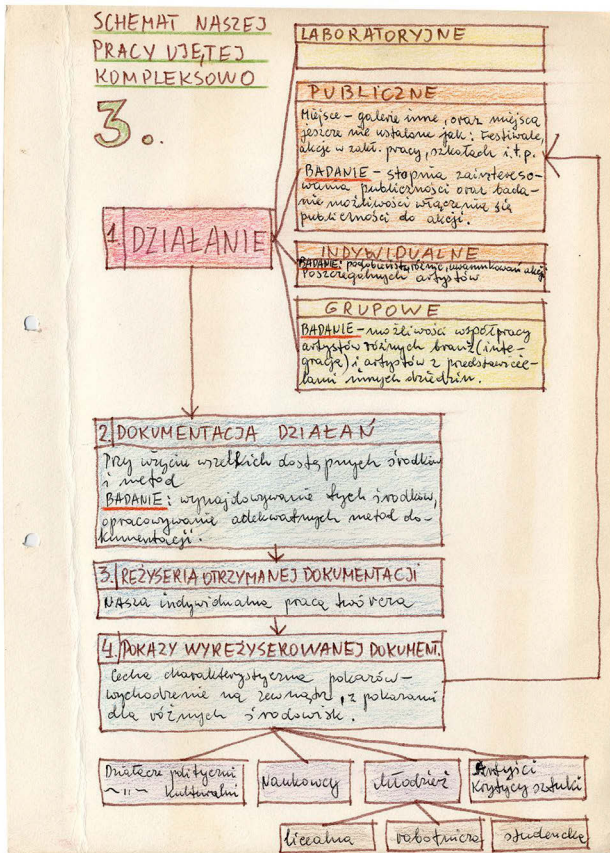 SCHEMAT NASZEJ
PRACY UJĘTEJ
KOMPLEKSOWO
3.
LABORATORYJNE
PUBLICZNE
Miejsce – galerie inne, oraz miejsca
jeszcze nie ustalone jak: Festiwale,
akcje w zakł. pracy, szkołach i.t.p.
BADANIE – stopnia zaintereso-
wania publiczności oraz bada-
nie możliwości włączenia się
publiczności do akcji.
1. DZIAŁANIE
INDYWIDUALNE
BADANIE: podobieństw, różnic, uwarunkowań akcji
poszczególnych artystów
GRUPOWE
BADANIE – możliwości współpracy
artystów różnych branż (inte-
gracja) i artystów z przedstawicie-
lami innych dziedzin.
2. DOKUMENTACJA DZIAŁAŃ
Przy użyciu wszelkich dostępnych środków
i metod
BADANIE: wynajdowywanie tych środków,
opracowywanie adekwatnych metod do-
kumentacji.
3. REŻYSERIA OTRZYMANEJ DOKUMENTACJI
Nasza indywidualna praca twórcza
4. POKAZY WYREŻYSEROWANEJ DOKUMENT.
Cecha charakterystyczna pokazów –
wychodzenie na zewnątrz, z pokazami
dla różnych środowisk.
Działacze polityczni
~ " ~ kulturalni
Naukowcy
Młodzież
Artyści
Krytycy sztuki
licealna
robotnicza
studencka